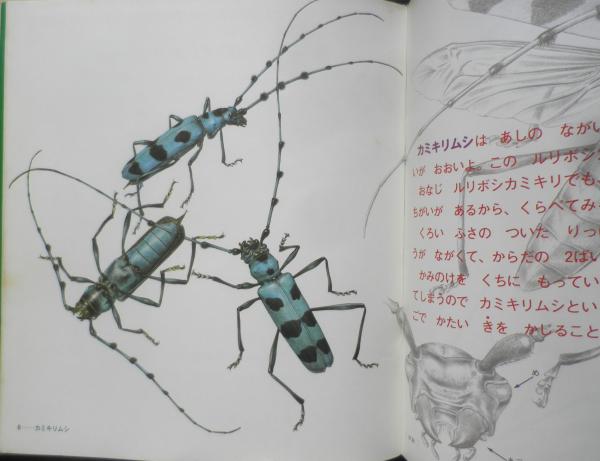 カミキリムシは あしの ながい
いが おおいよ。この ルリボシカ
おなじ ルリボシカミキリでも、
ちがいが あるから、くらべてみ
くろい ふさの ついた りっ
うが ながくて、からだの 2ばい
かみのけを くちに もってい
てしまうので カミキリムシとい
ごで かたい きを かじること
め
8……カミキリムシ